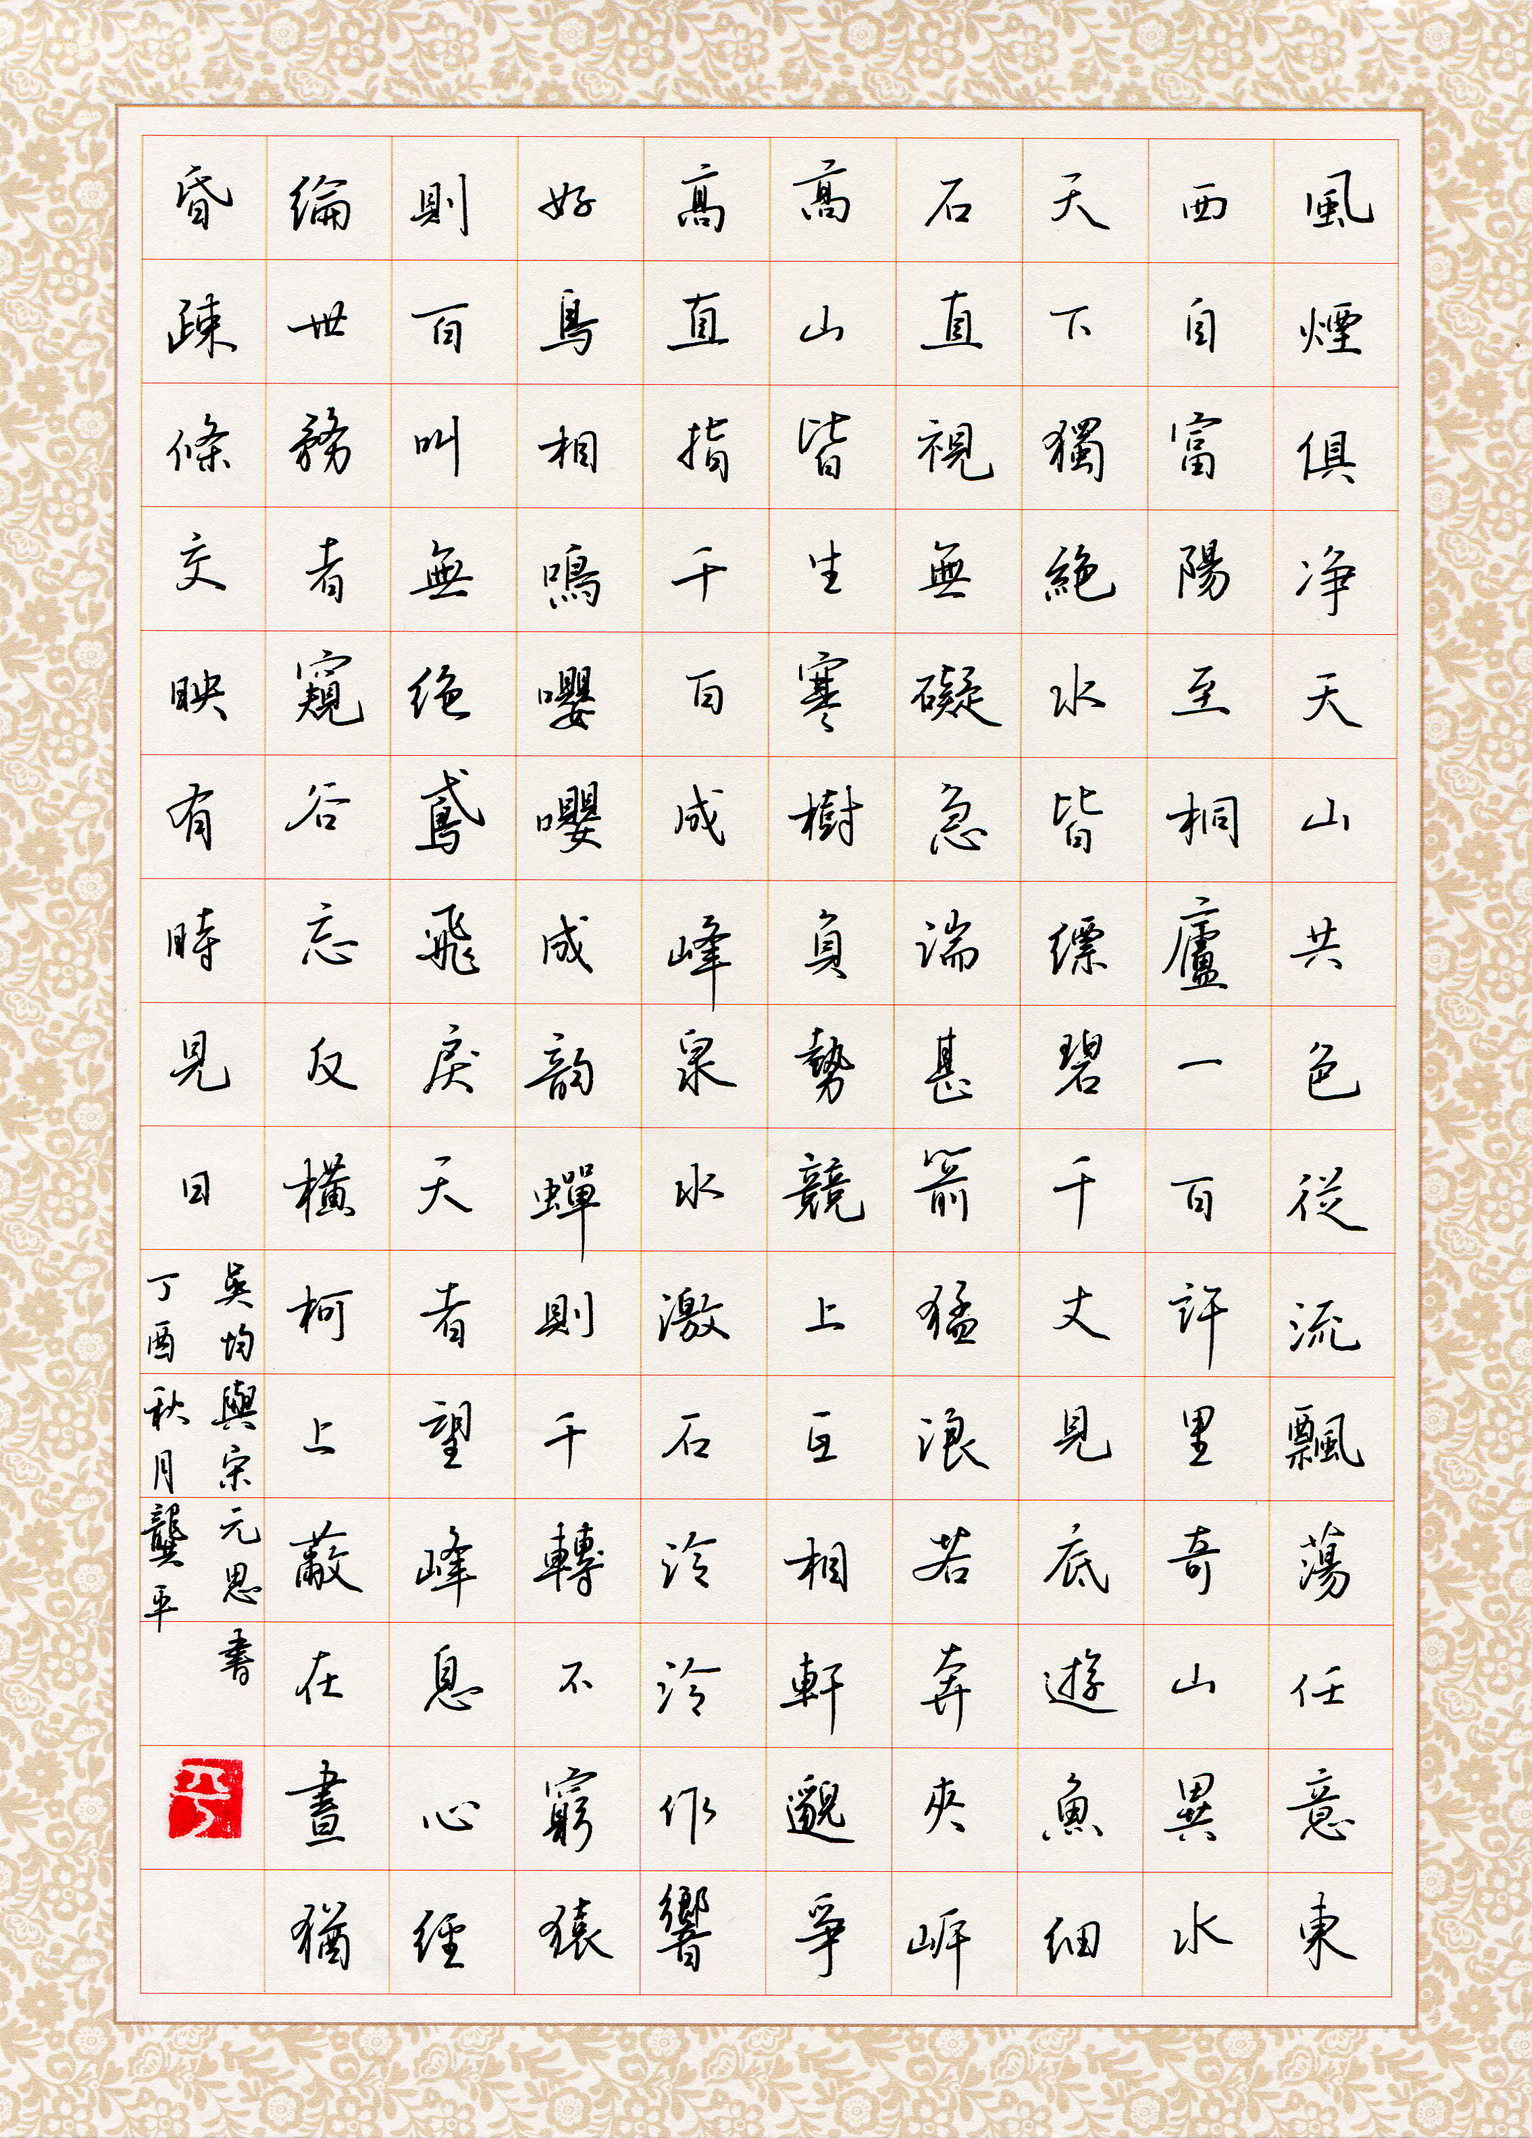 風煙俱净天山共色從流飄蕩任意東
西自富陽至桐廬一百許里奇山異水
天下獨絕水皆縹碧千丈見底遊魚細
石直視無礙急湍甚箭猛浪若奔夾岍
高山皆生寒樹負勢競上互相軒邈爭
高直指千百成峰泉水激石泠泠作響
好鳥相鳴嚶嚶成韵蟬則千轉不窮猿
則百叫無绝鳶飛戾天者望峰息心經
綸世務者窺谷忘反橫柯上蔽在晝猶
昏疎條交映有時見日
吳均與宋元思書
丁酉秋月龔平